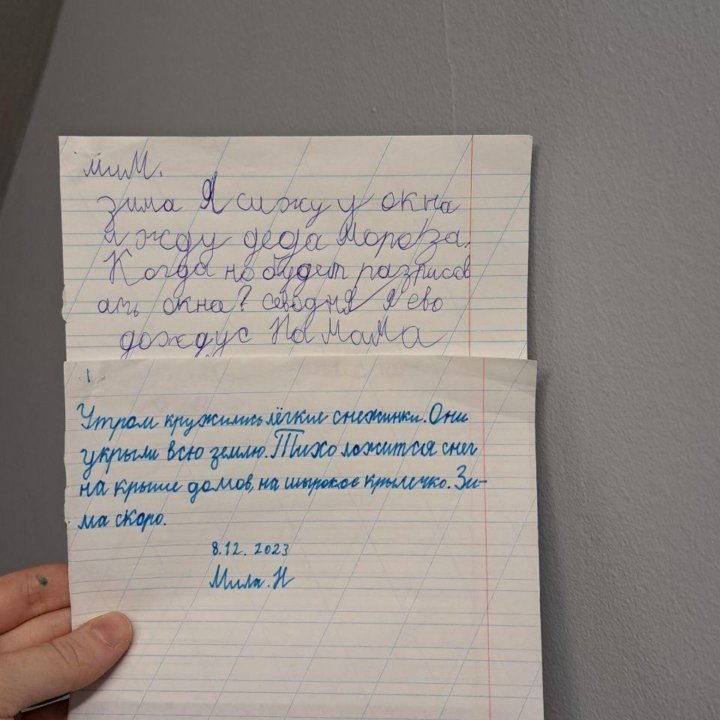 МиМ.
зима Я сижу у окна
и жду деда Мороза.
Когда но будет разрисов
ать окна? севодня я ево
дождус На МаМа
1
Утром кружились лёгкие снежинки. Они
укрыли всю землю. Тихо ложится снег
на крыши домов, на широкое крылечко. Зи-
ма скоро.
8.12.2023
Мила.Н